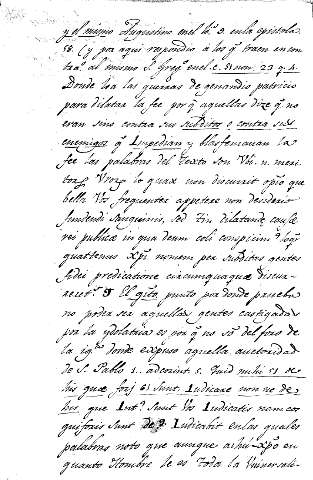 y el mismo Augustino en el l.º 3. en la epistola
58. (y por aqui respondio a los q. traen en con
tra al mismo S. Greg.º en el c. si non 23 q. 4.
Donde loa las guerras de genandio patricio
para dilatar la fee por q. aquellas dize q. no
eran sino contra sus subditos o contra sus
enemigos q. Impedian y blasfemauan la
fee las palabras del Texto son
que
bella Vos frequenter appetere non desiderio
fundendi Sanguinis, sed dilatande
rei publicæ in qua deum coli conspicim.
quattenus Xpi nomem per subditas gentes
fidei predicatione circumquaque discu
rreret. El punto por donde prueba
no poder ser aquellas gentes castigadas
por la ydolatria es por q. no son del foro de
la ig.ª donde expuso aquella auctoridad
de S. Pablo 1. ad corint. 5. Quid mihi de
his quæ foris sunt, Iudicare non ne de
his, que Int. Sunt Vos Iudicatis nam eos
qui foris Sunt Iudicabit en las quales
palabras noto que aunque a chr Xpo en
quanto Hombre le es Toda la Vniversali-